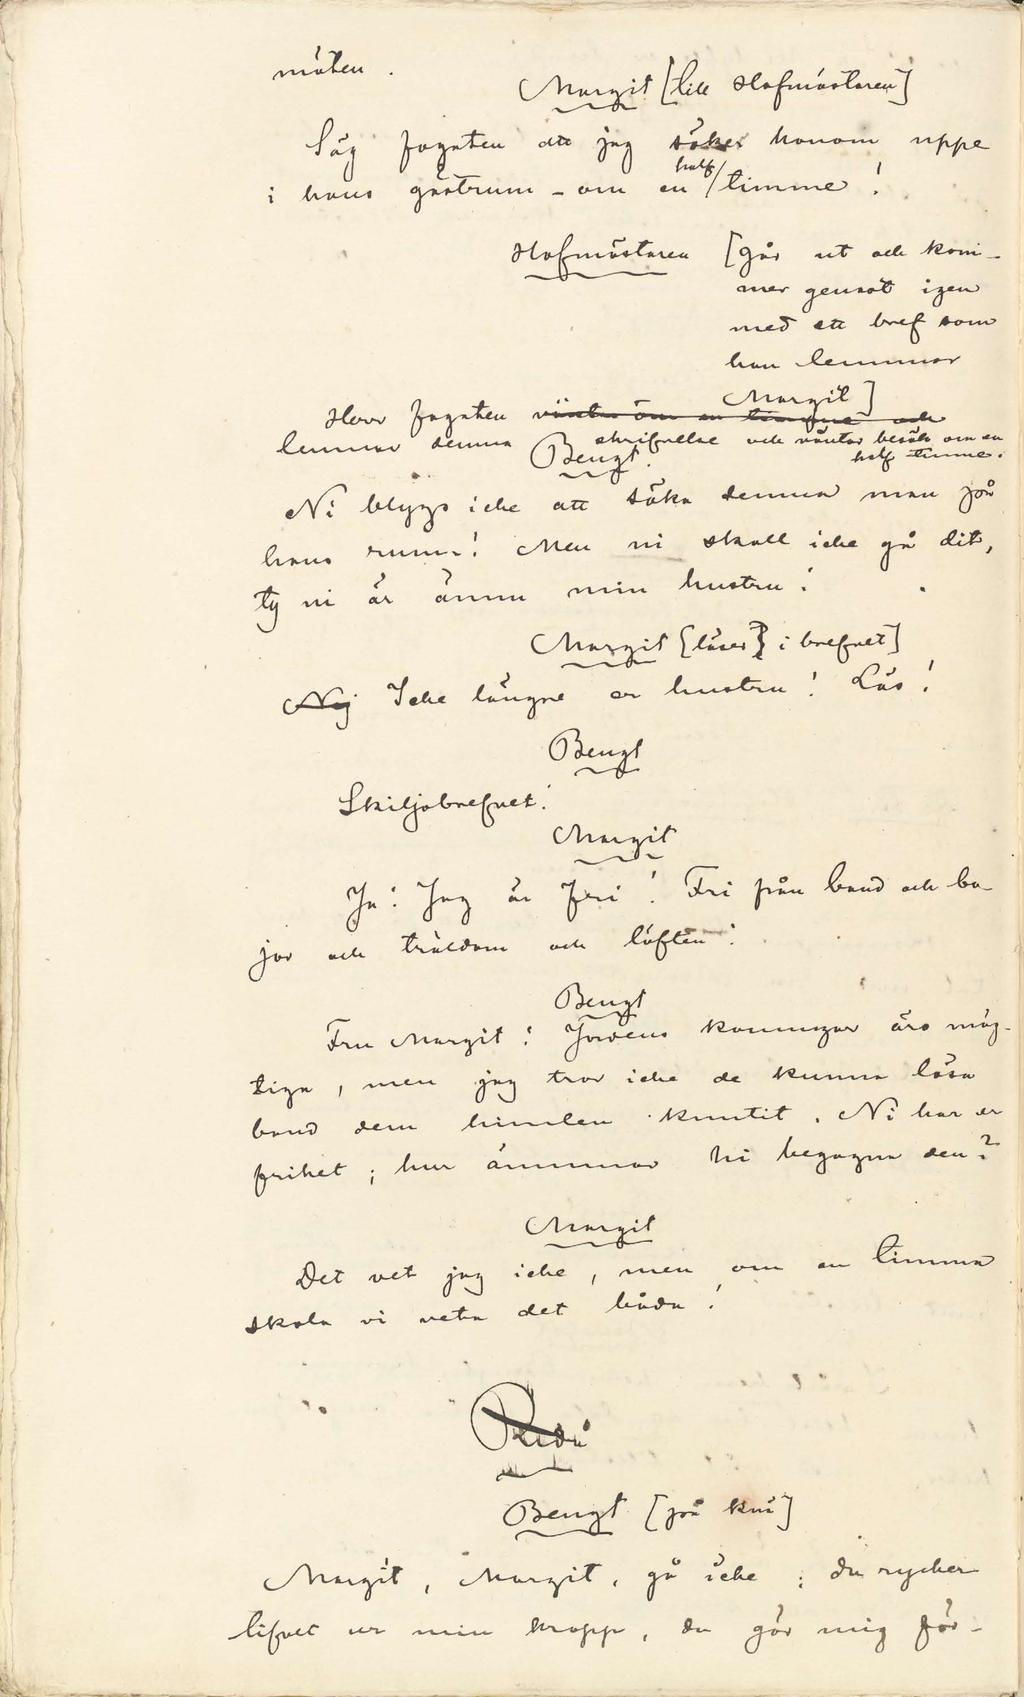 möten.
Margit [till Hofmästaren]
Säg fogaten att jag söker honom uppe
half
i hans gästrum – om en / timme!
Hofmästaren [går ut och kom–
mer genast igen
med ett bref som
han lemnar
Margit]
Herr fogaten väntar om en timme och
lemnar denna skrifvelse och väntar besök om en
half timme.
Bengt.
Ni blygs icke att söka denna man på
hans rum! Men ni skall icke gå dit,
ty ni är ännu min hustru!
Margit [läser] i brefvet]
Nej Icke längre er hustru! Läs!
Bengt
Skiljobrefvet!
Margit
Ja! Jag är fri! Fri från band och bo–
jor och träldom och löften!
Bengt
Fru Margit! Jordens konungar äro mäg–
tiga, men jag tror icke de kunna lösa
band dem himlen knutit. Ni har er
frihet; hur ämnar Ni begagna den?
Margit
Det vet jag icke, men om en timma
skola vi veta det båda!
Ridå
Bengt [på knä]
Margit, Margit, gå icke; du rycker
lifvet ur min kropp, du gör mig för–